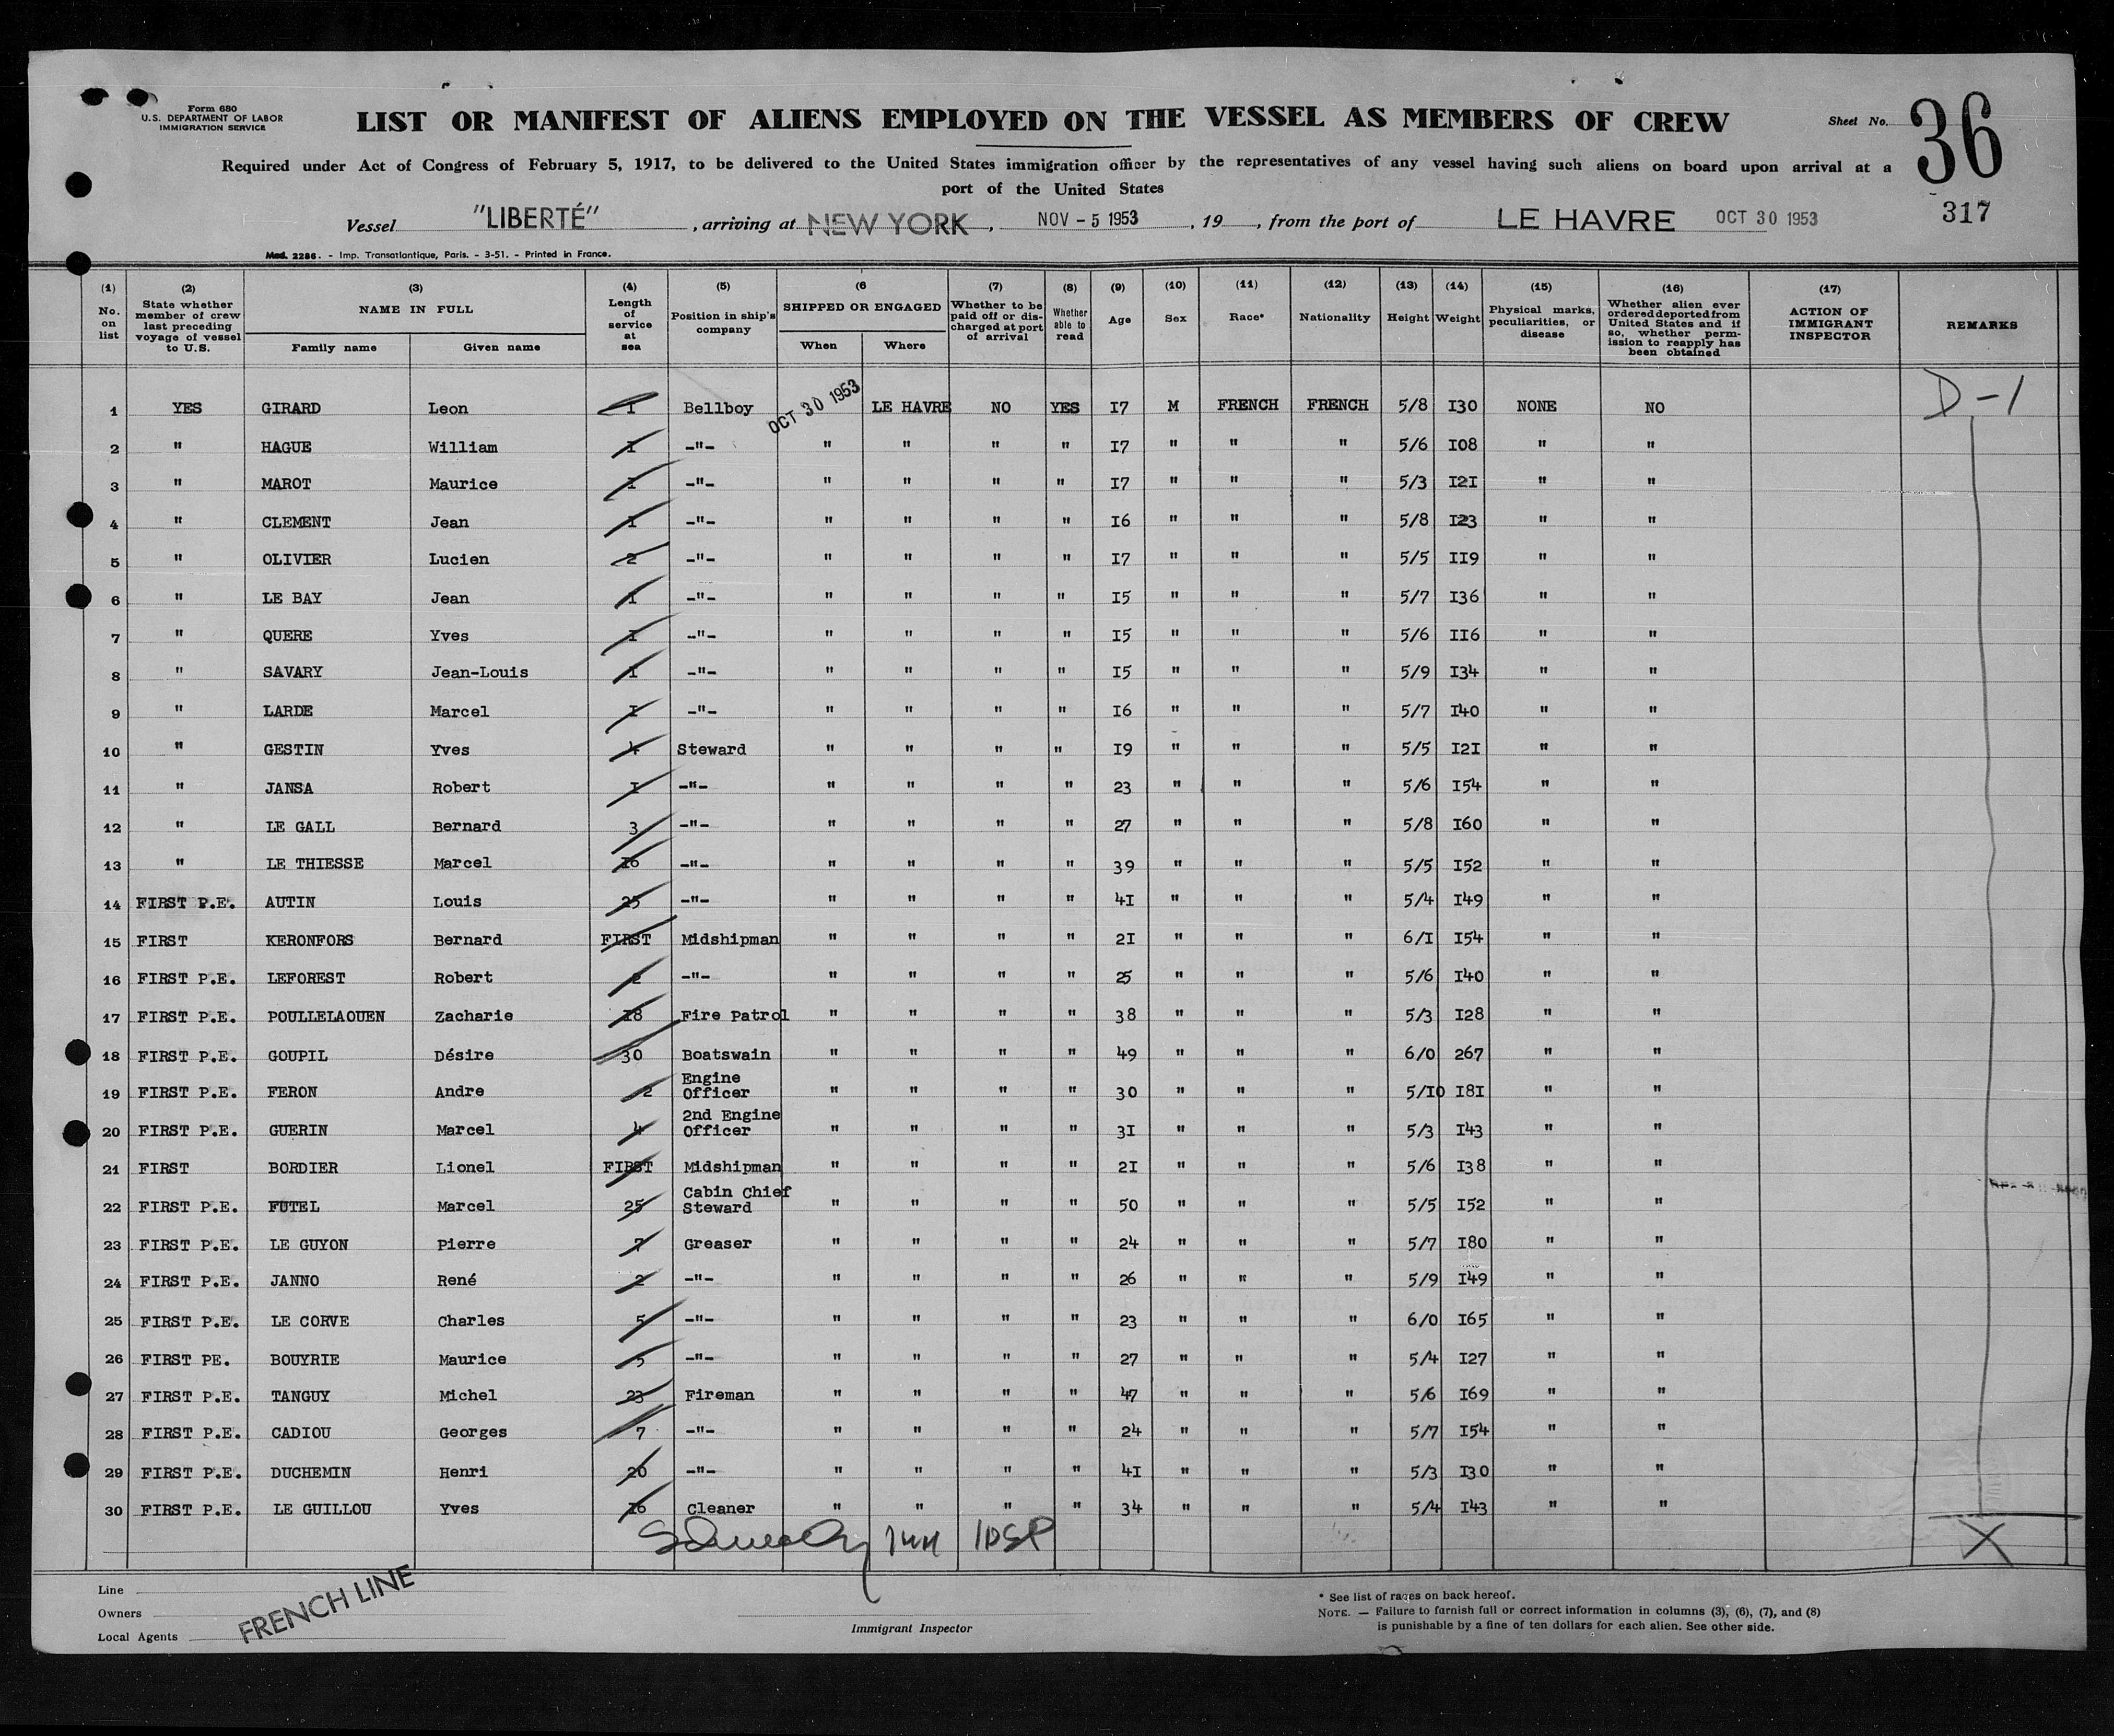 Form 680
U.S. DEPARTMENT OF LABOR
IMMIGRATION SERVICE
LIST OR MANIFEST OF ALIENS EMPLOYED ON THE VESSEL AS MEMBERS OF CREW
Sheet No. 36
Required under Act of Congress of February 5, 1917, to be delivered to the United States immigration officer by the representatives of any vessel having such aliens on board upon arrival at a
port of the United States
317
Vessel "LIBERTÉ", arriving at NEW YORK, NOV - 5 1953, 19, from the port of LE HAVRE OCT 30 1953
Mod. 2286. - Imp. Transatlantique, Paris. - 3-51. - Printed in France.
(1) No. on list (2) State whether member of crew last preceding voyage of vessel to U.S. (3) NAME IN FULL Family name Given name (4) Length of service at sea (5) Position in ship's company (6 SHIPPED OR ENGAGED When Where (7) Whether to be paid off or discharged at port of arrival (8) Whether able to read (9) Age (10) Sex (11) Race* (12) Nationality (13) Height (14) Weight (15) Physical marks, peculiarities, or disease (16) Whether alien ever ordered deported from United States and if so, whether permission to reapply has been obtained (17) ACTION OF IMMIGRANT INSPECTOR REMARKS
1 YES GIRARD Leon I Bellboy OCT 30 1953 LE HAVRE NO YES I7 M FRENCH FRENCH 5/8 I30 NONE NO D-1
2 " HAGUE William I -"- " " " " I7 " " " 5/6 I08 " "
3 " MAROT Maurice I -"- " " " " I7 " " " 5/3 I2I " "
4 " CLEMENT Jean I -"- " " " " I6 " " " 5/8 I23 " "
5 " OLIVIER Lucien 2 -"- " " " " I7 " " " 5/5 II9 " "
6 " LE BAY Jean I -"- " " " " I5 " " " 5/7 I36 " "
7 " QUERE Yves I -"- " " " " I5 " " " 5/6 II6 " "
8 " SAVARY Jean-Louis I -"- " " " " I5 " " " 5/9 I34 " "
9 " LARDE Marcel I -"- " " " " I6 " " " 5/7 I40 " "
10 " GESTIN Yves 4 Steward " " " " I9 " " " 5/5 I2I " "
11 " JANSA Robert I -"- " " " " 23 " " " 5/6 I54 " "
12 " LE GALL Bernard 3 -"- " " " " 27 " " " 5/8 I60 " "
13 " LE THIESSE Marcel I6 -"- " " " " 39 " " " 5/5 I52 " "
14 FIRST P.E. AUTIN Louis 25 -"- " " " " 4I " " " 5/4 I49 " "
15 FIRST KERONFORS Bernard FIRST Midshipman " " " " 2I " " " 6/I I54 " "
16 FIRST P.E. LEFOREST Robert 2 -"- " " " " 25 " " " 5/6 I40 " "
17 FIRST P.E. POULLELAOUEN Zacharie I8 Fire Patrol " " " " 38 " " " 5/3 I28 " "
18 FIRST P.E. GOUPIL Désire 30 Boatswain " " " " 49 " " " 6/0 267 " "
19 FIRST P.E. FERON Andre 2 Engine Officer " " " " 30 " " " 5/I0 I8I " "
20 FIRST P.E. GUERIN Marcel 4 2nd Engine Officer " " " " 3I " " " 5/3 I43 " "
21 FIRST BORDIER Lionel FIRST Midshipman " " " " 2I " " " 5/6 I38 " "
22 FIRST P.E. FUTEL Marcel 25 Cabin Chief Steward " " " " 50 " " " 5/5 I52 " "
23 FIRST P.E. LE GUYON Pierre 7 Greaser " " " " 24 " " " 5/7 I80 " "
24 FIRST P.E. JANNO René 2 -"- " " " " 26 " " " 5/9 I49 " "
25 FIRST P.E. LE CORVE Charles 5 -"- " " " " 23 " " " 6/0 I65 " "
26 FIRST PE. BOUYRIE Maurice 5 -"- " " " " 27 " " " 5/4 I27 " "
27 FIRST P.E. TANGUY Michel 23 Fireman " " " " 47 " " " 5/6 I69 " "
28 FIRST P.E. CADIOU Georges 7 -"- " " " " 24 " " " 5/7 I54 " "
29 FIRST P.E. DUCHEMIN Henri 20 -"- " " " " 4I " " " 5/3 I30 " "
30 FIRST P.E. LE GUILLOU Yves I6 Cleaner " " " " 34 " " " 5/4 I43 " "
X
Line
Owners
Local Agents
FRENCH LINE
Immigrant Inspector
* See list of races on back hereof.
NOTE. — Failure to furnish full or correct information in columns (3), (6), (7), and (8)
is punishable by a fine of ten dollars for each alien. See other side.